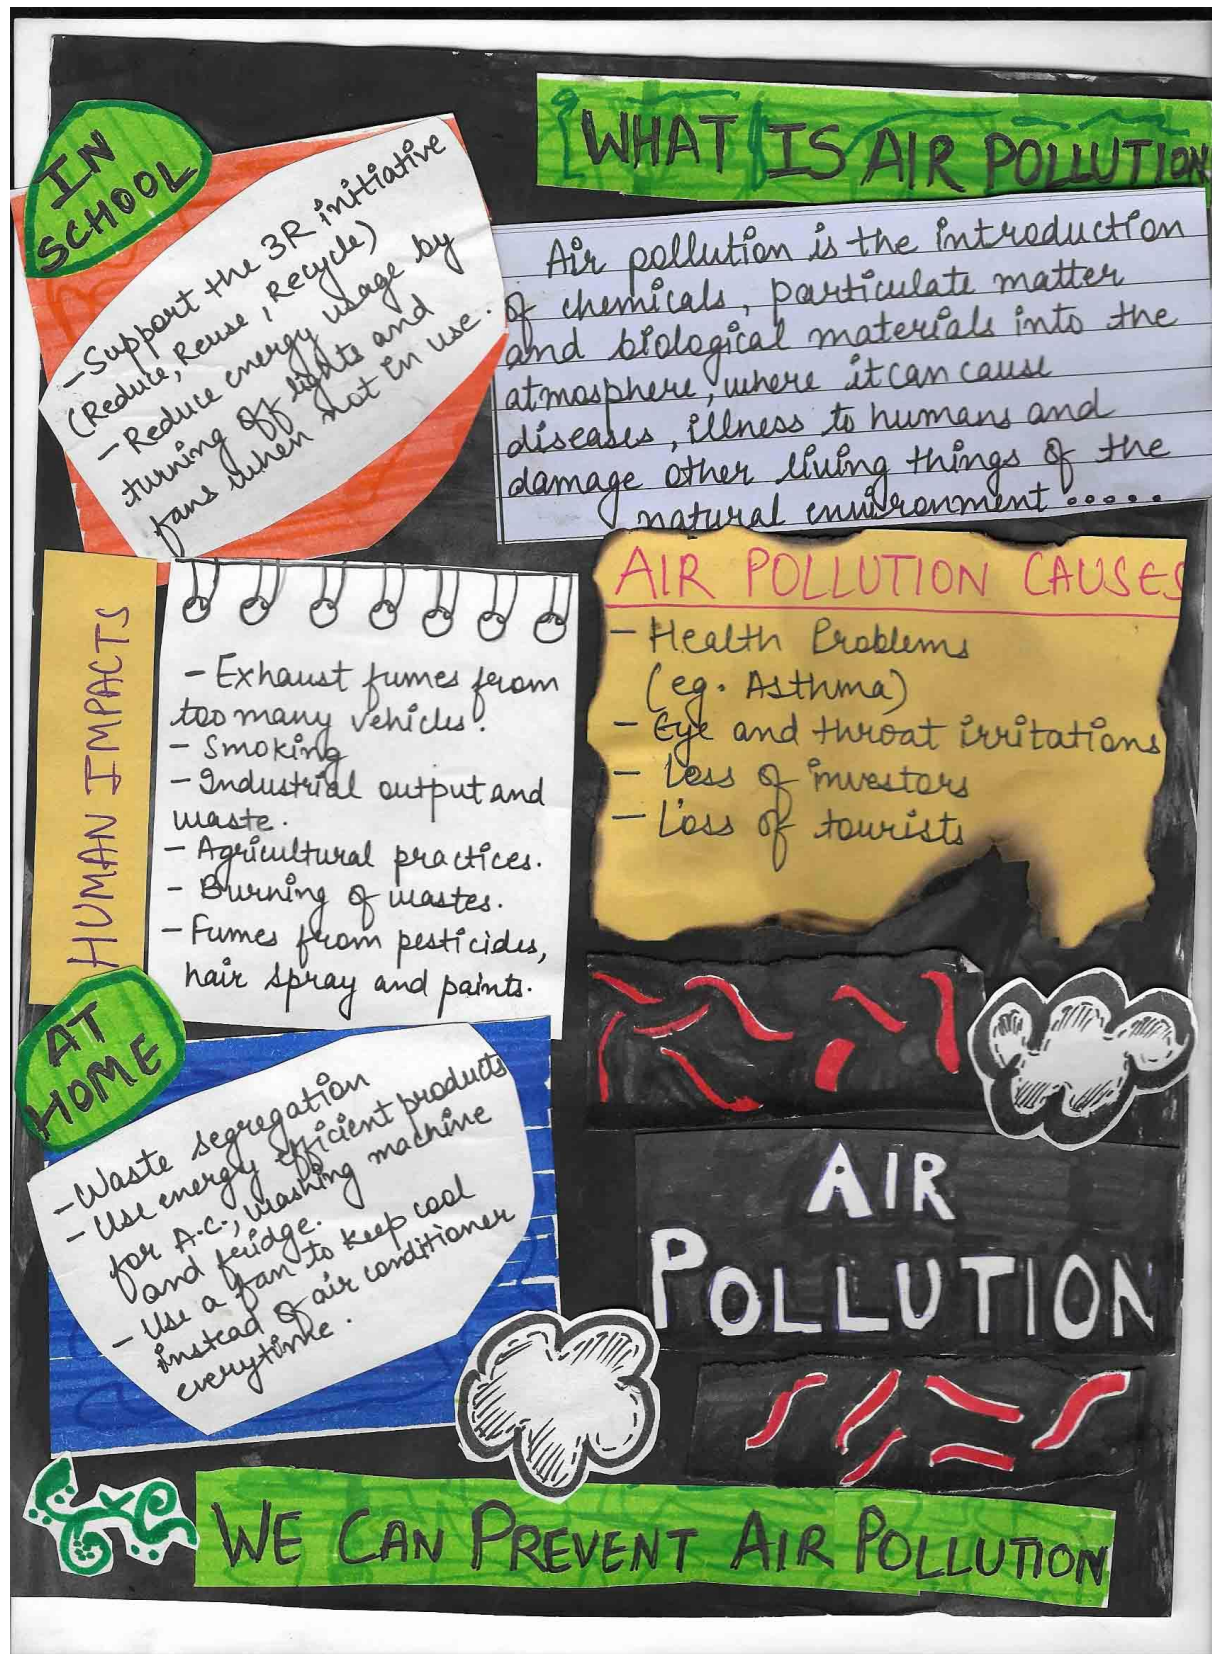 IN
SCHOOL
- Support the 3R initiative
(Reduce, Reuse, Recycle)
- Reduce energy usage by
turning off lights and
fans when not in use.
WHAT IS AIR POLLUTION
Air pollution is the introduction
of chemicals, particulate matter
and biological materials into the
atmosphere, where it can cause
diseases, illness to humans and
damage other living things of the
natural environment .....
HUMAN IMPACTS
- Exhaust fumes from
too many vehicles.
- Smoking
- Industrial output and
waste.
- Agricultural practices.
- Burning of wastes.
- Fumes from pesticides,
hair spray and paints.
AIR POLLUTION CAUSES
- Health Problems
(eg. Asthma)
- Eye and throat irritations
- Less of investors
- Loss of tourists
AT
HOME
- Waste segregation
- Use energy efficient products
for A.C., washing machine
and fridge.
- Use a fan to keep cool
instead of air conditioner
everytime.
AIR
POLLUTION
WE CAN PREVENT AIR POLLUTION